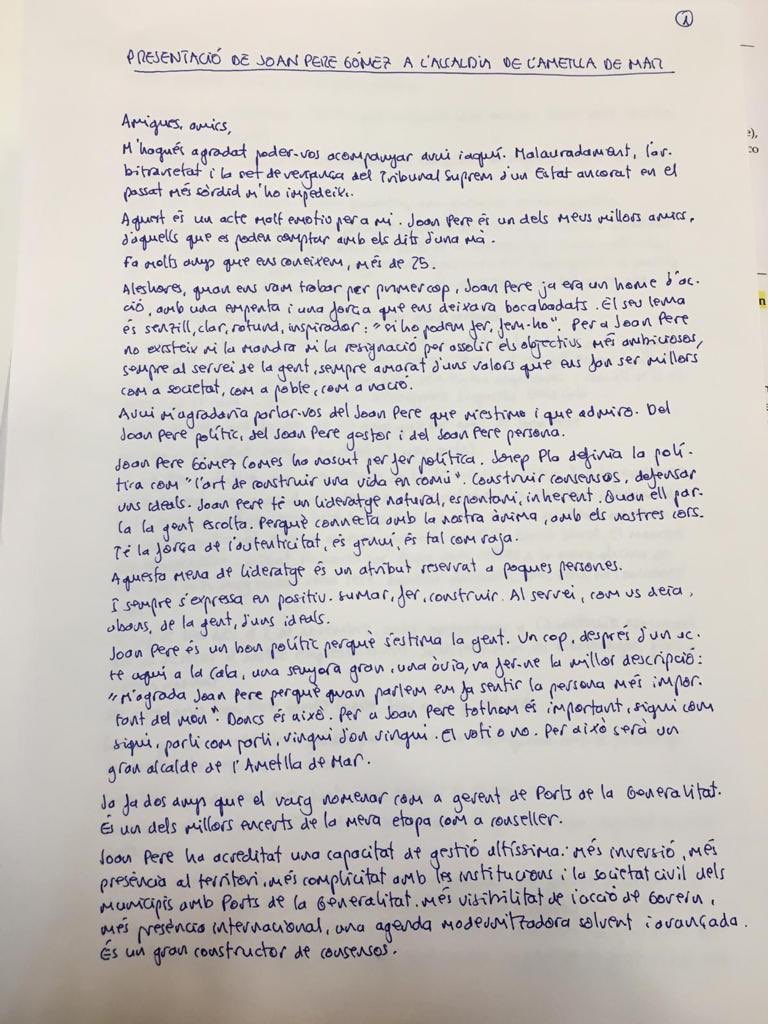 1
PRESENTACIÓ DE JOAN PERE GÓMEZ A L'ALCALDIA DE L'AMETLLA DE MAR
Amigues, amics,
M'hagués agradat poder-vos acompanyar avui i aquí. Malauradament, l'ar-
bitrarietat i la set de venjança del Tribunal Suprem d'un Estat ancorat en el
passat més sòrdid m'ho impedeix.
Aquest és un acte molt emotiu per a mi. Joan Pere és un dels meus millors amics,
d'aquells que es poden comptar amb els dits d'una mà.
Fa molts anys que ens coneixem, més de 25.
Aleshores, quan ens vam trobar per primer cop, Joan Pere ja era un home d'ac-
ció, amb una empenta i una força que ens deixava bocabadats. El seu lema
és senzill, clar, rotund, inspirador: "si ho podem fer, fem-ho". Per a Joan Pere
no existeix ni la mandra ni la resignació per assolir els objectius més ambiciosos,
sempre al servei de la gent, sempre amarat d'uns valors que ens fan ser millors
com a societat, com a poble, com a nació.
Avui m'agradaria parlar-vos del Joan Pere que m'estimo i que admiro. Del
Joan Pere polític, del Joan Pere gestor i del Joan Pere persona.
Joan Pere Gómez Comes ha nascut per fer política. Josep Pla definia la polí-
tica com "l'art de construir una vida en comú". Construir consensos, defensar
uns ideals. Joan Pere té un lideratge natural, espontani, inherent. Quan ell par-
la la gent escolta. Perquè connecta amb la nostra ànima, amb els nostres cors.
Té la força de l'autenticitat, és genuí, és tal com raja.
Aquesta mena de lideratge és un atribut reservat a poques persones.
I sempre s'expressa en positiu. Sumar, fer, construir. Al servei, com us deia,
abans, de la gent, d'uns ideals.
Joan Pere és un bon polític perquè s'estima la gent. Un cop, després d'un ac-
te aquí a la Cala, una senyora gran, una àvia, va fer-ne la millor descripció:
"M'agrada Joan Pere perquè quan parlem em fa sentir la persona més impor-
tant del món". Doncs és això. Per a Joan Pere tothom és important, sigui com
sigui, parli com parli, vingui d'on vingui. El voti o no. Per això serà un
gran alcalde de l'Ametlla de Mar.
Ja fa dos anys que el vaig nomenar com a gerent de Ports de la Generalitat.
És un dels millors encerts de la meva etapa com a conseller.
Joan Pere ha acreditat una capacitat de gestió altíssima. Més inversió, més
presència al territori, més complicitat amb les institucions i la societat civil dels
municipis amb Ports de la Generalitat. Més visibilitat de l'acció de Govern,
més presència internacional, una agenda modernitzadora solvent i avançada.
És un gran constructor de consensos.